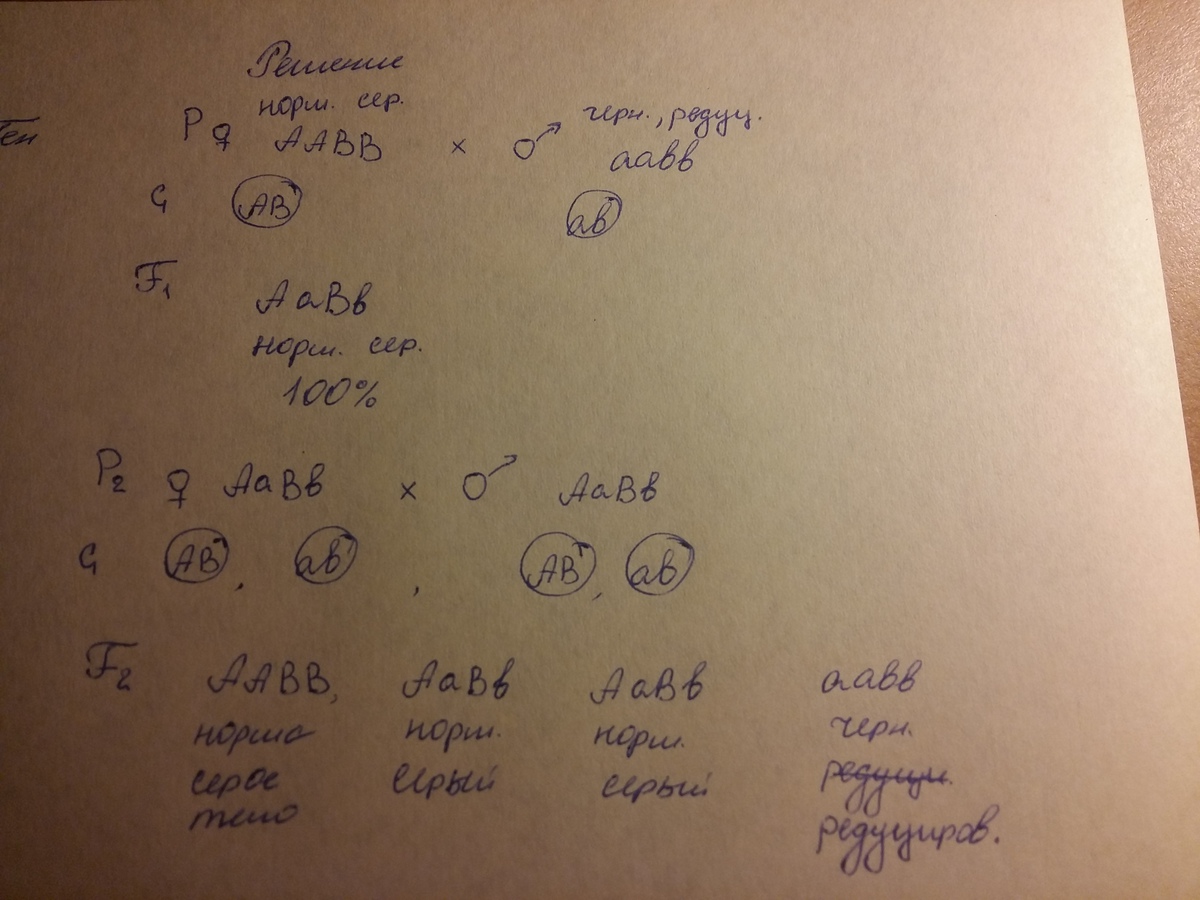 Решение
норм. сер. черн., редуц.
Ген P ♀ AABB × ♂ aaвв
G AB aв
F₁ AaBв
норм. сер.
100%
P₂ ♀ AaBв × ♂ AaBв
G AB, aв, AB, aв
F₂ AABB, AaBв AaBв aaвв
норма норм. норм. черн.
серое серый серый редуци.
тело редуциров.